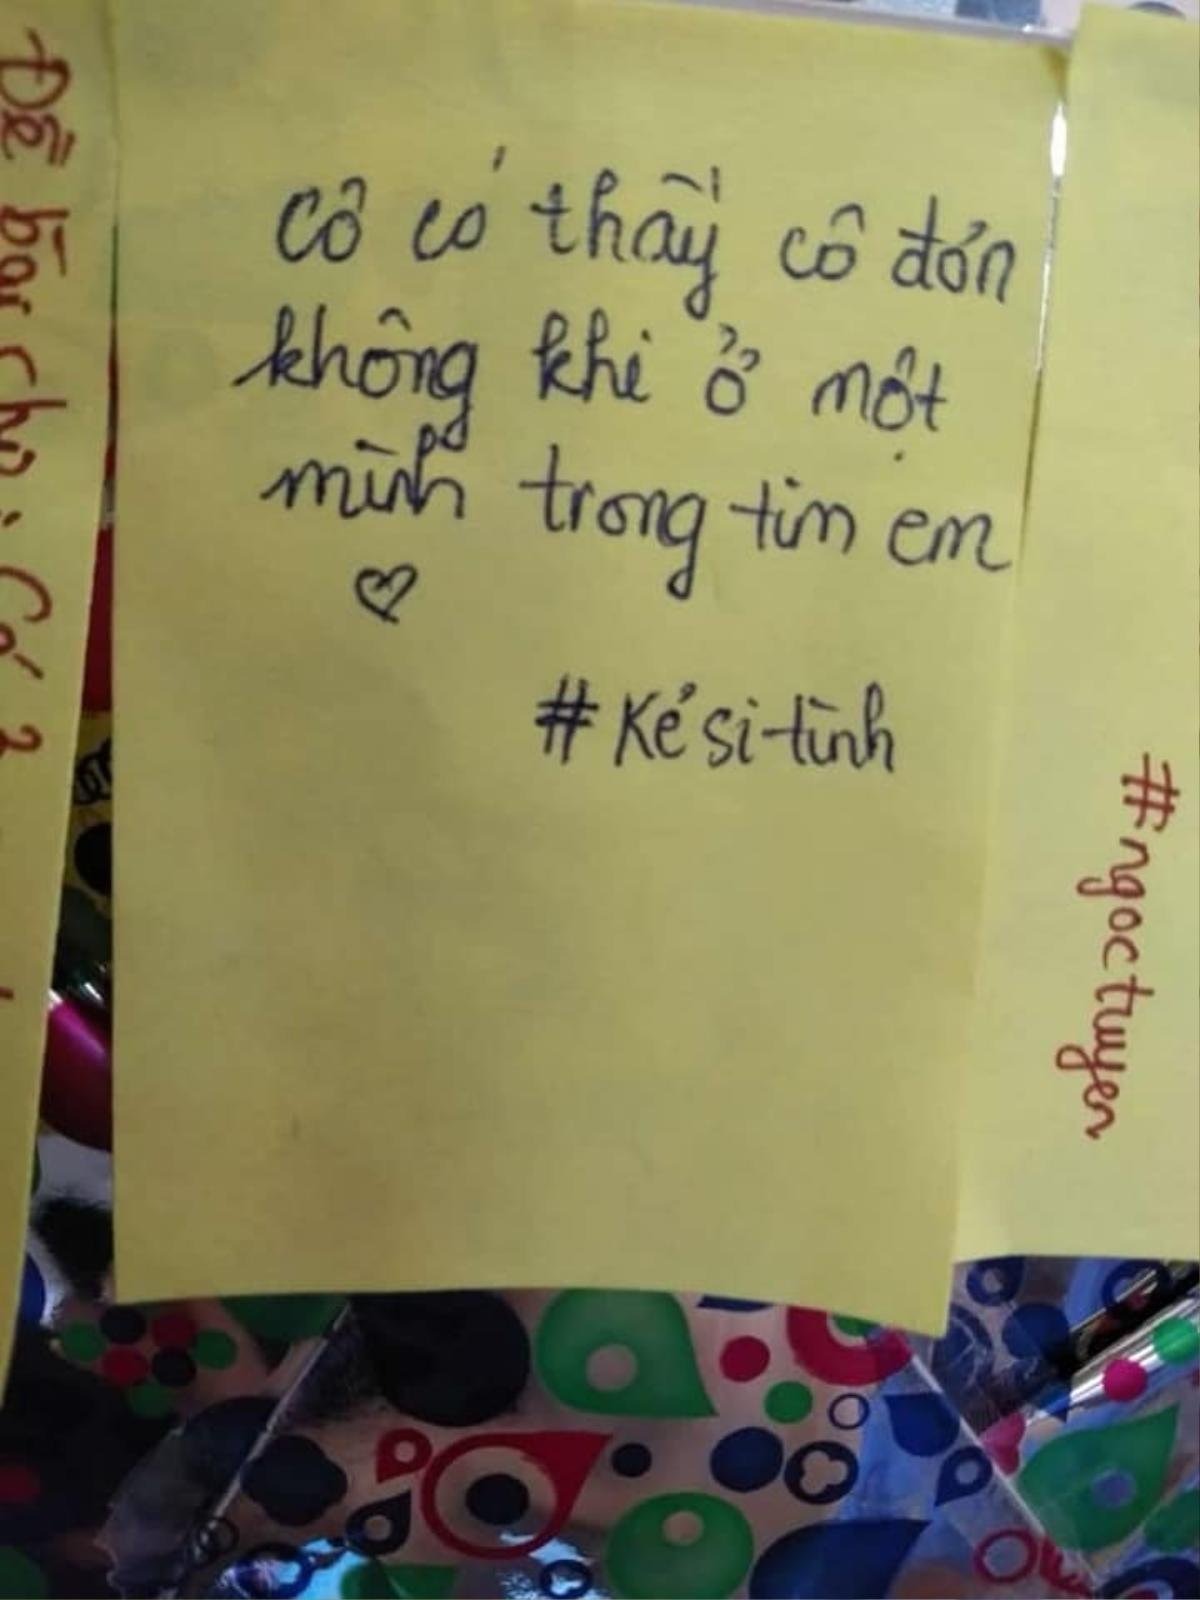 Cô có thấy cô đơn
không khi ở một
mình trong tim em
♡
#Kẻ si tình
#ngoctuyen